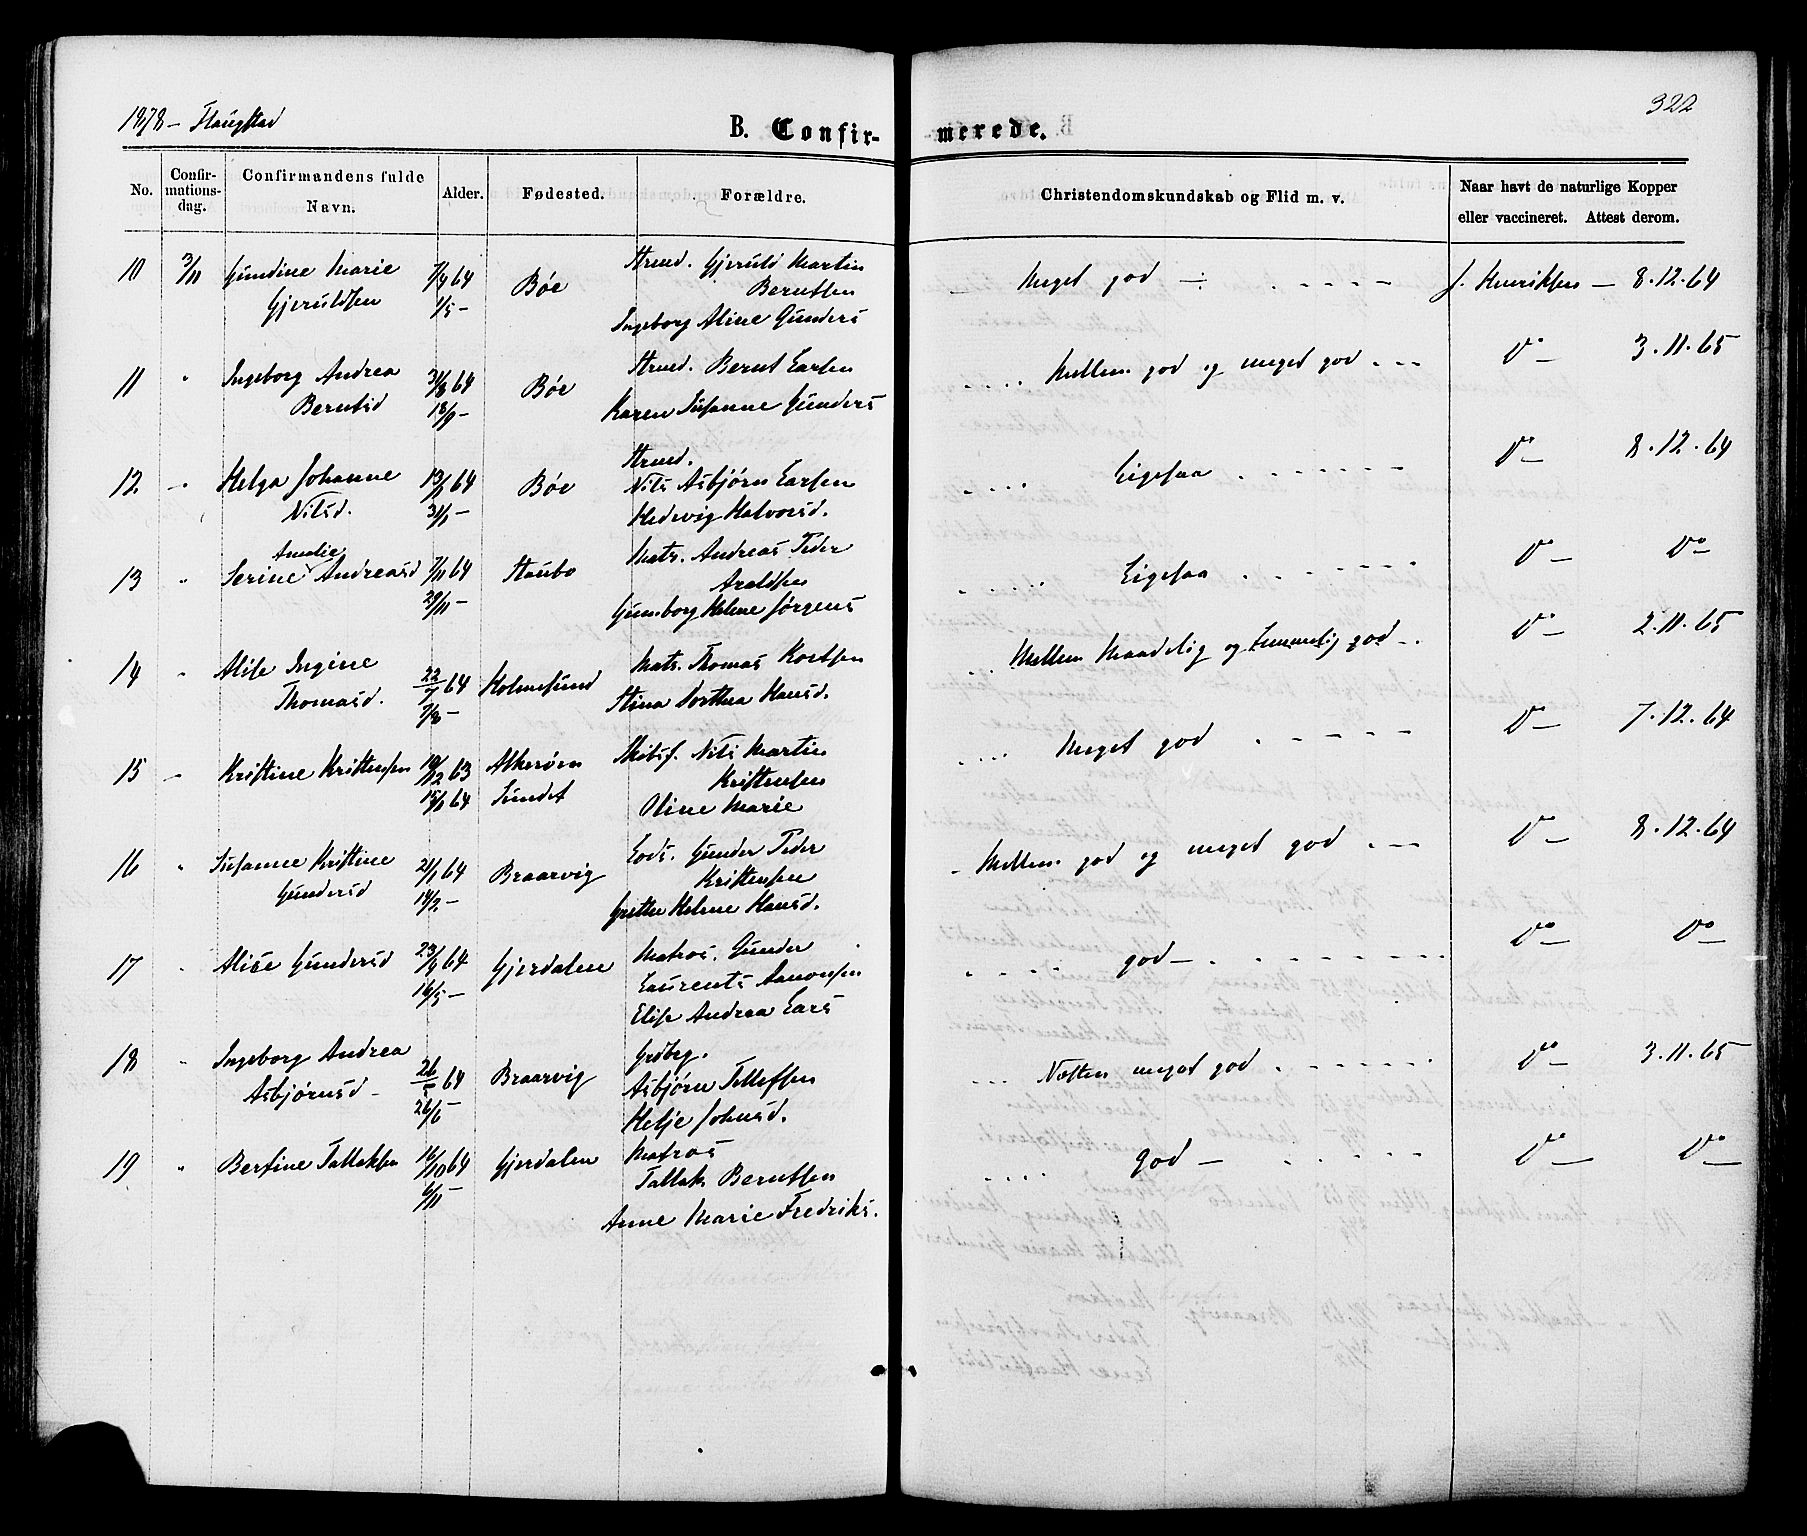 1878 - Flaugstad
322
B. Confir- merede.
No. Confir-mations-dag. Confirmandens fulde Navn. Alder. Fødested. Forældre. Christendomskundskab og Flid m. v. Naar havt de naturlige Kopper eller vaccineret. Attest derom.
10 3/11 Gundine Marie 7/4 64 Bøe Strmd. Gjeruld Martin Meget god J. Henriksen — 8.12.64
Gjeruldsen 1/5 — Berntsen
Ingeborg Aline Gunders
11 " Ingeborg Andrea 31/8 64 Bøe Strmd. Bernt Larsen Mellem god og meget god Do — 3.11.65
Berntsd 18/9 — Karen Susanne Gunders
12 " Helga Johanne 13/1 64 Bøe Strmd. Ligesaa Do — 8.12.64
Nilsd. 31/1 — Nils Asbjørn Larsen
Hedevig Halvorsd.
13 " Serine Amalie Andreasd 7/11 64 Staubo Matr. Andreas Peder Ligesaa Do — Do —
29/11 — Araldsen
Gunborg Helene Jørgens
14 " Alise Ingine 22/7 64 Holmesund Matr. Thomas Mellem Maadelig og temmelig god — Do — 2.11.65
Thomasd. 7/8 — Stina Dorthea Hansd.
15 — Kristine Kristensen 10/12 63 Alkerøen Skibsf. Nils Martin Meget god Do — 7.12.64
15/1 64 Sundet Kristensen
Oline Marie
16 " Susanne Kristine 21/1 64 Braarvig Lods. Gunder Peder Mellem god og meget god Do — 8.12.64
Gundersd 14/2 — Kristensen
Grethe Helene Hansd.
17 " Alise Gundersd 23/4 64 Gjerdalen Matros. Gunder god — Do — Do —
16/5 — Laurents Aanonsen
Elise Andrea Lars
18 " Ingeborg Andrea 26/5 64 Braarvig Grdbrg. Næsten meget god Do — 3.11.65
Asbjørnsd — 26/6 — Asbjørn Tellefsen
Helje Johnsd.
19 " Bertine Tallaksen 16/10 64 Gjerdalen Matros god — Do — Do —
6/11 — Tallak Berntsen
Anne Marie Fredriks.